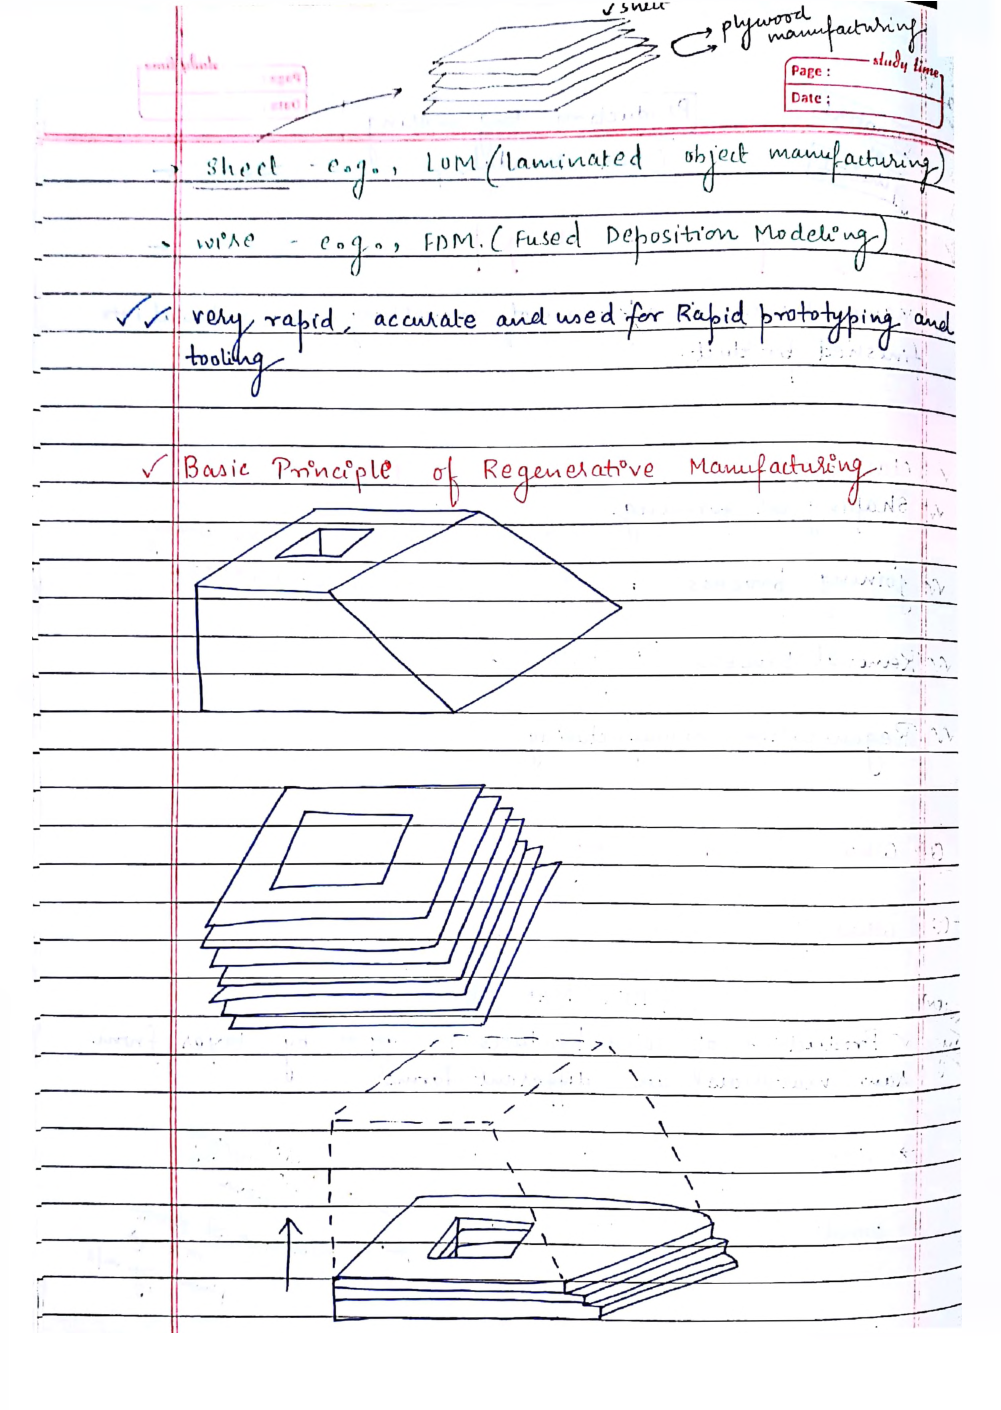 ✓ sheet
plywood
manufacturing
study time
Page :
Date :
→ sheet - e.g., LOM (laminated object manufacturing)
→ wire - e.g., FDM. (Fused Deposition Modeling)
✓✓ very rapid, accurate and used for Rapid prototyping and
tooling
✓ Basic Principle of Regenerative Manufacturing